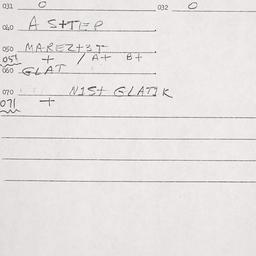 031 0 032 0
040 A S++EP
050 MAREZ+3T
051 + / A+ B+
060 GLAT
070 NIS+ GLATIK
071 +